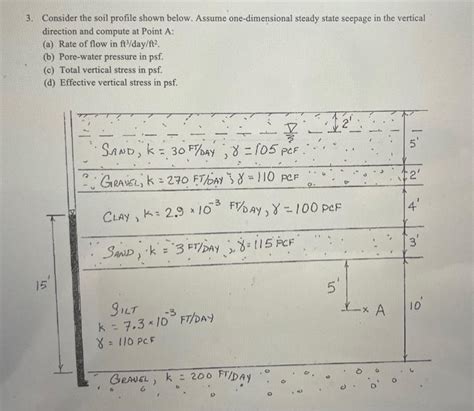 3. Consider the soil profile shown below. Assume one-dimensional steady state seepage in the vertical
direction and compute at Point A:
(a) Rate of flow in ft³/day/ft².
(b) Pore-water pressure in psf.
(c) Total vertical stress in psf.
(d) Effective vertical stress in psf.
2'
SAND, k = 30 FT/DAY, γ = 105 PCF
5'
GRAVEL, k = 270 FT/DAY, γ = 110 PCF
2'
CLAY, k = 2.9 × 10⁻³ FT/DAY, γ = 100 PCF
4'
SAND, k = 3 FT/DAY, γ = 115 PCF
3'
15'
5'
x A
10'
SILT
k = 7.3 × 10⁻³ FT/DAY
γ = 110 PCF
GRAVEL, k = 200 FT/DAY